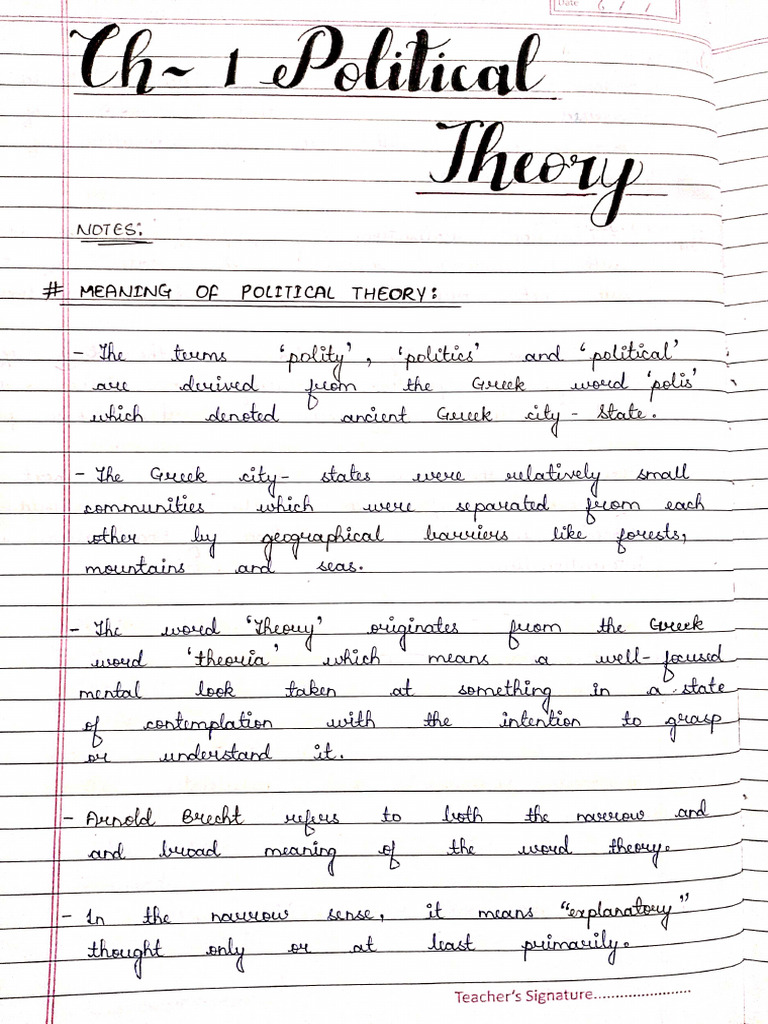 Date 6 / /
Ch~ 1 Political
Theory
NOTES:
# MEANING OF POLITICAL THEORY:
- The terms 'polity', 'politics' and 'political'
are derived from the Greek word 'polis'
which denoted ancient Greek city - state.
- The Greek city- states were relatively small
communities which were separated from each
other by geographical barriers like forests,
mountains and seas.
- The word 'Theory' originates from the Greek
word 'theoria' which means a well- focused
mental look taken at something in a state
of contemplation with the intention to grasp
or understand it.
- Arnold Brecht refers to both the narrow and
and broad meaning of the word theory.
- In the narrow sense, it means "explanatory"
thought only or at least primarily.
Teacher's Signature.......................